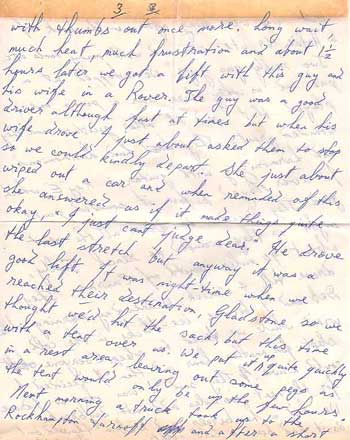 3
with thumbs out once more. Long wait,
much heat, much frustration and about 1½
hours later we got a lift with this guy and
his wife in a Rover. The guy was a good
driver although fast at times but when his
wife drove I just about asked them to stop
so we could kindly depart. She just about
wiped out a car and when reminded of this
she answered as if it made things quite
okay, "I just can't judge dear." He drove
the last stretch but anyway it was a
good lift. It was night-time when we
reached their destination, Gladstone, so we
thought we'd hit the sack but this time
with a tent over us. We put it up quite quickly
in a rest area leaving out some pegs as
the tent would only be up the few hours.
Next morning a truck took us to the
Rockhampton turnoff and after a short